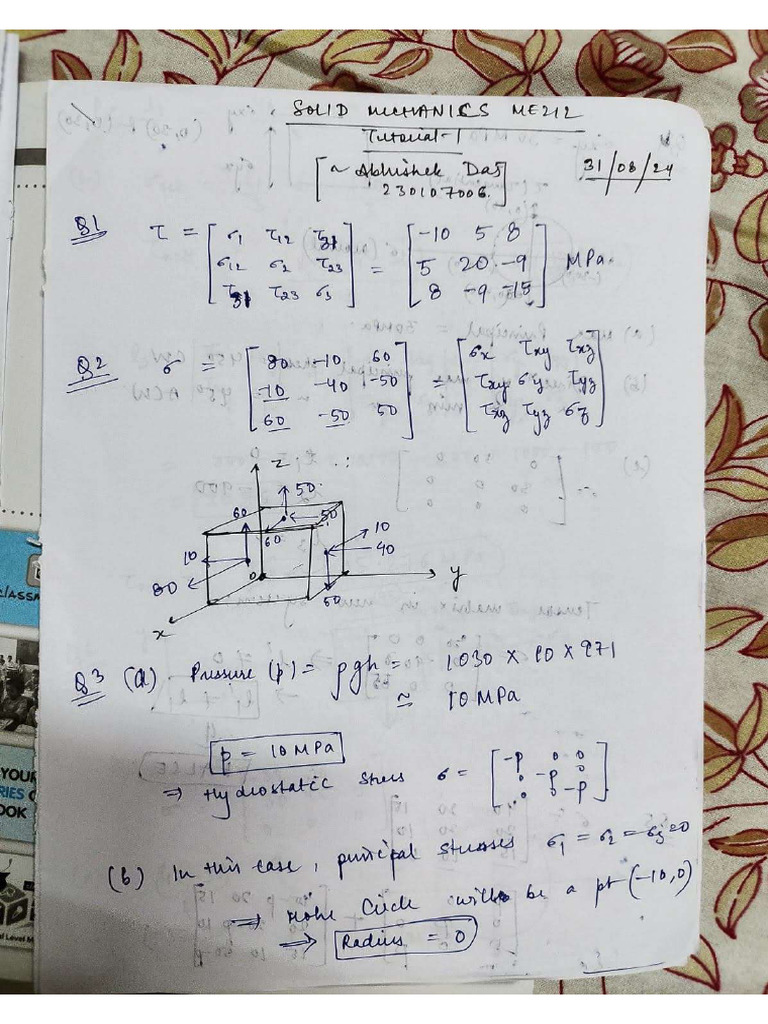 SOLID MECHANICS ME212
Tutorial-1
[~ Abhishek Das
230107006]
31/08/24
Q1 τ = [σ1 τ12 τ31; σ12 σ2 τ23; τ31 τ23 σ3] = [-10 5 8; 5 20 -9; 8 -9 -15] MPa
Q2 σ = [80 -10 60; -10 -40 -50; 60 -50 50] = [σx τxy τxz; τxy σy τyz; τxz τyz σz]
z
50
60 50
60 10
10 40
80 0
50 y
x
Q3 (a) Pressure (p) = ρgh = 1030 × 10 × 971
≃ 10 MPa
p = 10 MPa
⇒ Hydrostatic stress σ = [-p 0 0; 0 -p 0; 0 0 -p]
(b) In this case, principal stresses σ1 = σ2 = σ3 = 0
⇒ Mohr Circle will be a pt (-10,0)
⇒ Radius = 0
YOUR
RIES
OOK